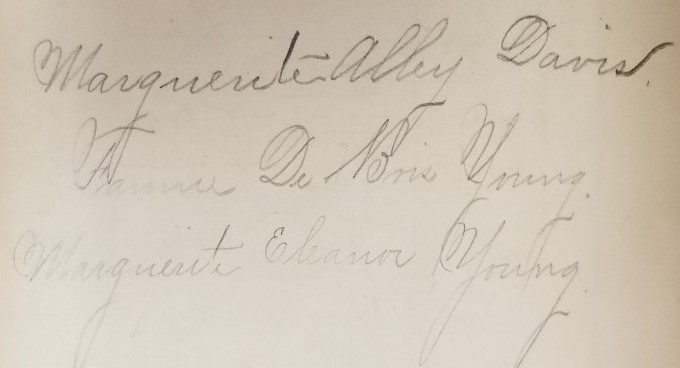 Marguerite Alley Davis.
Fannie De Bois Young.
Marguerite Eleanor Young.